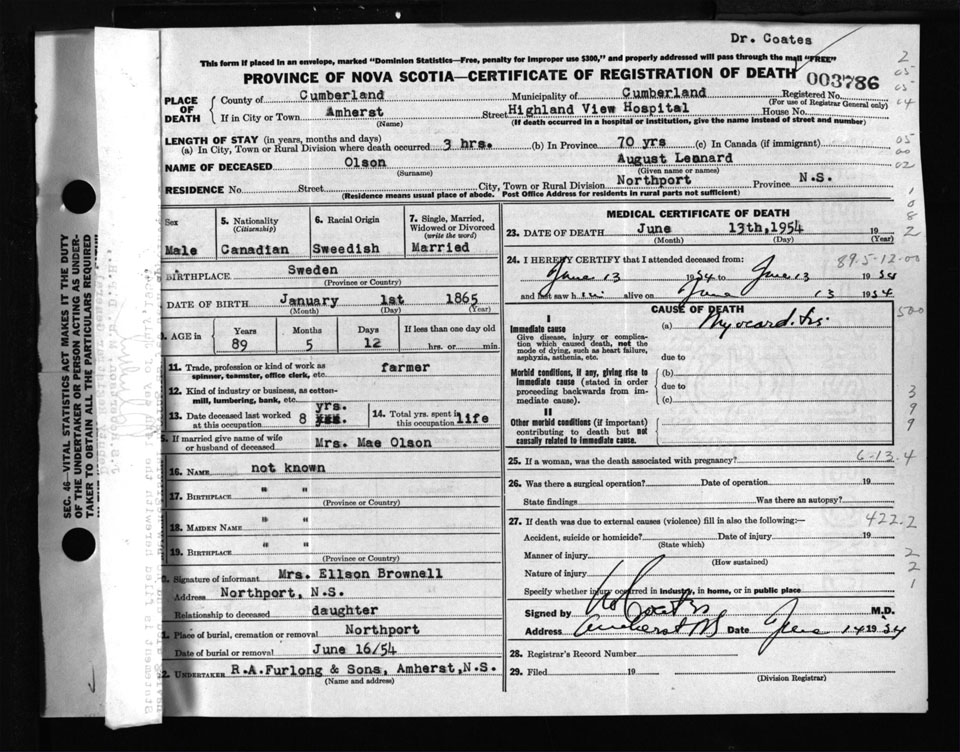 Dr. Coates
This form if placed in an envelope, marked "Dominion Statistics—Free, penalty for improper use $300," and properly addressed will pass through the mail "FREE"
PROVINCE OF NOVA SCOTIA—CERTIFICATE OF REGISTRATION OF DEATH 003786
PLACE OF DEATH County of Cumberland Municipality of Cumberland Registered No.
(For use of Registrar General only)
If in City or Town Amherst Street Highland View Hospital House No.
(Name) (If death occurred in a hospital or institution, give the name instead of street and number)
LENGTH OF STAY (in years, months and days)
(a) In City, Town or Rural Division where death occurred 3 hrs. (b) In Province 70 yrs (c) In Canada (if immigrant)
NAME OF DECEASED Olson August Lennard
(Surname) (Given name or names)
RESIDENCE No. Street City, Town or Rural Division Northport Province N.S.
(Residence means usual place of abode. Post Office address for residents in rural parts not sufficient)
Sex Male
5. Nationality (Citizenship) Canadian
6. Racial Origin Swedish
7. Single, Married, Widowed or Divorced (write the word) Married
BIRTHPLACE Sweden
(Province or Country)
DATE OF BIRTH January 1st 1865
(Month) (Day) (Year)
AGE in Years Months Days If less than one day old
89 5 12 hrs. or min.
11. Trade, profession or kind of work as spinner, teamster, office clerk, etc. farmer
12. Kind of industry or business, as cotton-mill, lumbering, bank, etc.
13. Date deceased last worked at this occupation 8 yrs.
14. Total yrs. spent in this occupation life
If married give name of wife or husband of deceased Mrs. Mae Olson
16. NAME not known
17. BIRTHPLACE " "
(Province or Country)
18. MAIDEN NAME " "
19. BIRTHPLACE " "
(Province or Country)
Signature of informant Mrs. Ellson Brownell
Address Northport, N.S.
Relationship to deceased daughter
Place of burial, cremation or removal Northport
Date of burial or removal June 16/54
UNDERTAKER R.A.Furlong & Sons, Amherst,N.S.
(Name and address)
MEDICAL CERTIFICATE OF DEATH
23. DATE OF DEATH June 13th,1954 19
(Month) (Day) (Year)
24. I HEREBY CERTIFY that I attended deceased from: 89-5-12-00
June 13 1954 to June 13 1954
and last saw him alive on June 13 1954
CAUSE OF DEATH
I
Immediate cause
Give disease, injury or complication which caused death, not the mode of dying, such as heart failure, asphyxia, asthenia, etc.
(a) Myocarditis.
due to
Morbid conditions, if any, giving rise to immediate cause (stated in order proceeding backwards from immediate cause).
(b)
due to
(c)
II
Other morbid conditions (if important) contributing to death but not causally related to immediate cause.
25. If a woman, was the death associated with pregnancy? 6-13-4
26. Was there a surgical operation? Date of operation 19
State findings Was there an autopsy?
27. If death was due to external causes (violence) fill in also the following:— 422.2
Accident, suicide or homicide? Date of injury 19
(State which)
Manner of injury
(How sustained)
Nature of injury
Specify whether injury occurred in industry, in home, or in public place
Signed by Coates M.D.
Address Amherst NS Date June 14 1954
28. Registrar's Record Number
29. Filed 19
(Division Registrar)
SEC. 46—VITAL STATISTICS ACT MAKES IT THE DUTY
OF THE UNDERTAKER OR PERSON ACTING AS UNDER-
TAKER TO OBTAIN ALL THE PARTICULARS REQUIRED